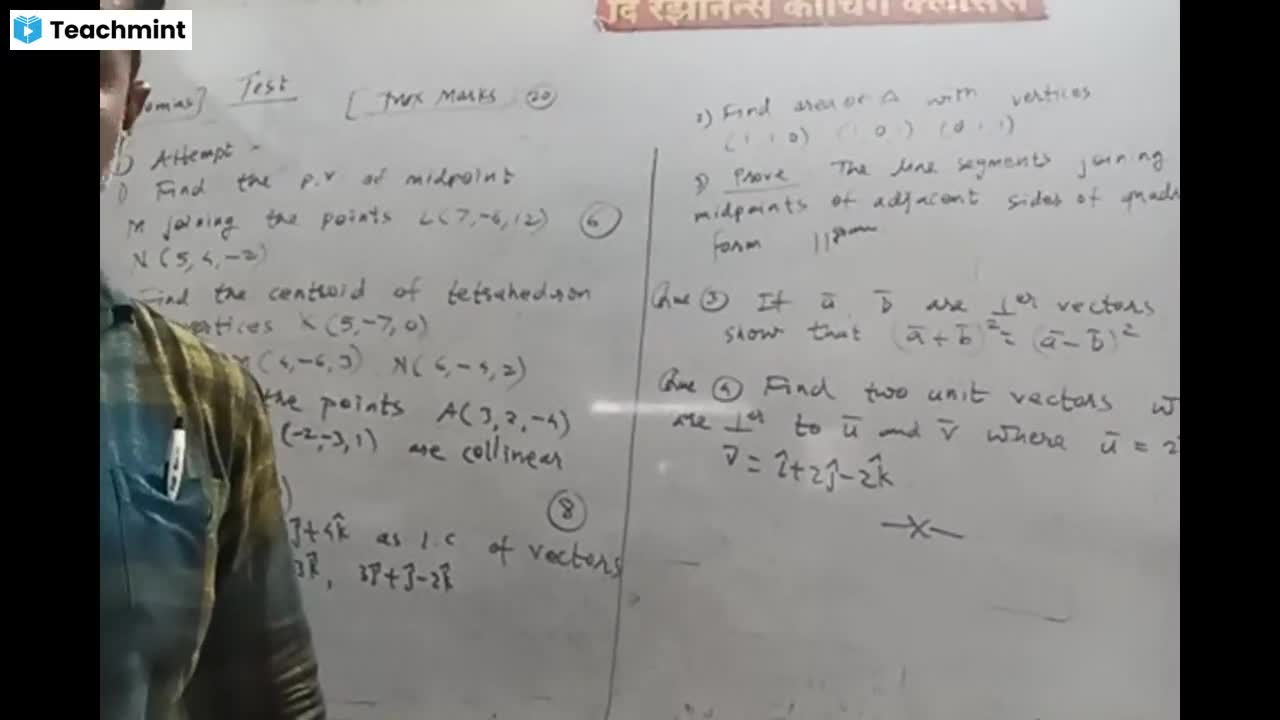 Teachmint
दि रेझोनन्स कोचिंग क्लासेस
Test [ Max Marks 20
1) Attempt -
1) Find the p.v. of midpoint
M joining the points L(7,-6,12) 6
N(5,4,-2)
Find the centroid of tetrahedron
vertices K(5,-7,0)
(4,-6,3) N(6,-4,2)
the points A(3,2,-4)
(-2,-3,1) are collinear
8
+4k̂ as l.c of vectors
, 3î+ĵ-2k̂
2) Find area of Δ with vertices
(1,1,0) (1,0,1) (0,1,1)
Prove The line segments joining
midpoints of adjacent sides of quadr
form ||gram
Que 3 If ā b̄ are ⊥er vectors
show that (ā+b̄)²= (ā-b̄)²
Que 4 Find two unit vectors w
are ⊥er to ū and v̄ where ū = 2
v̄ = î+2ĵ-2k̂
—x—